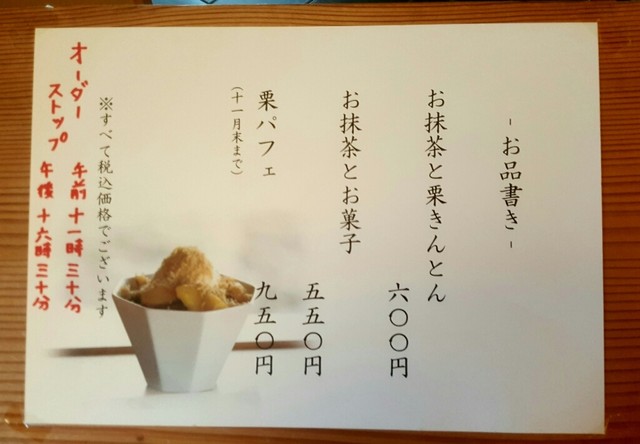 - お品書き -
お抹茶と栗きんとん
六〇〇円
お抹茶とお菓子
五五〇円
栗パフェ
(十一月末まで)
九五〇円
※すべて税込価格でございます
オーダー
ストップ
午前 十一時 三十分
午後 十六時 三十分